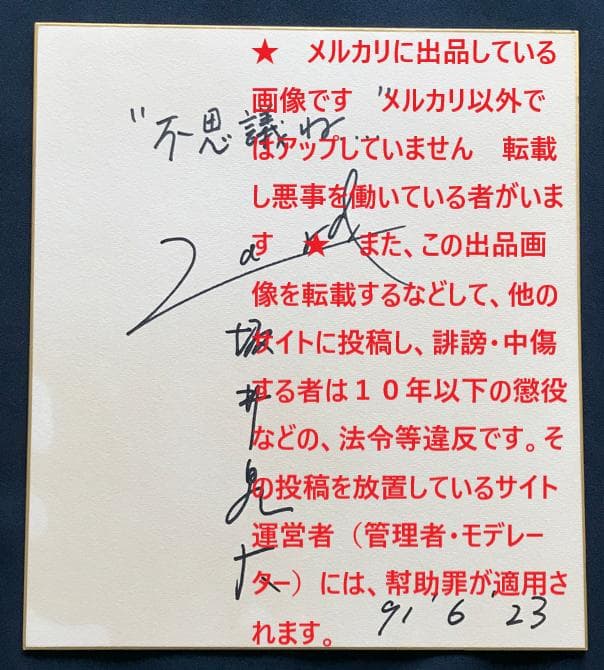 ★　メルカリに出品している
画像です　メルカリ以外で
はアップしていません　転載
し悪事を働いている者がいま
す　★　また、この出品画
像を転載するなどして、他の
サイトに投稿し、誹謗・中傷
する者は１０年以下の懲役
などの、法令等違反です。そ
の投稿を放置しているサイト
運営者（管理者・モデレー
ター）には、幇助罪が適用さ
れます。
"不思議ね…"
Zard
坂井泉水
91'6'23